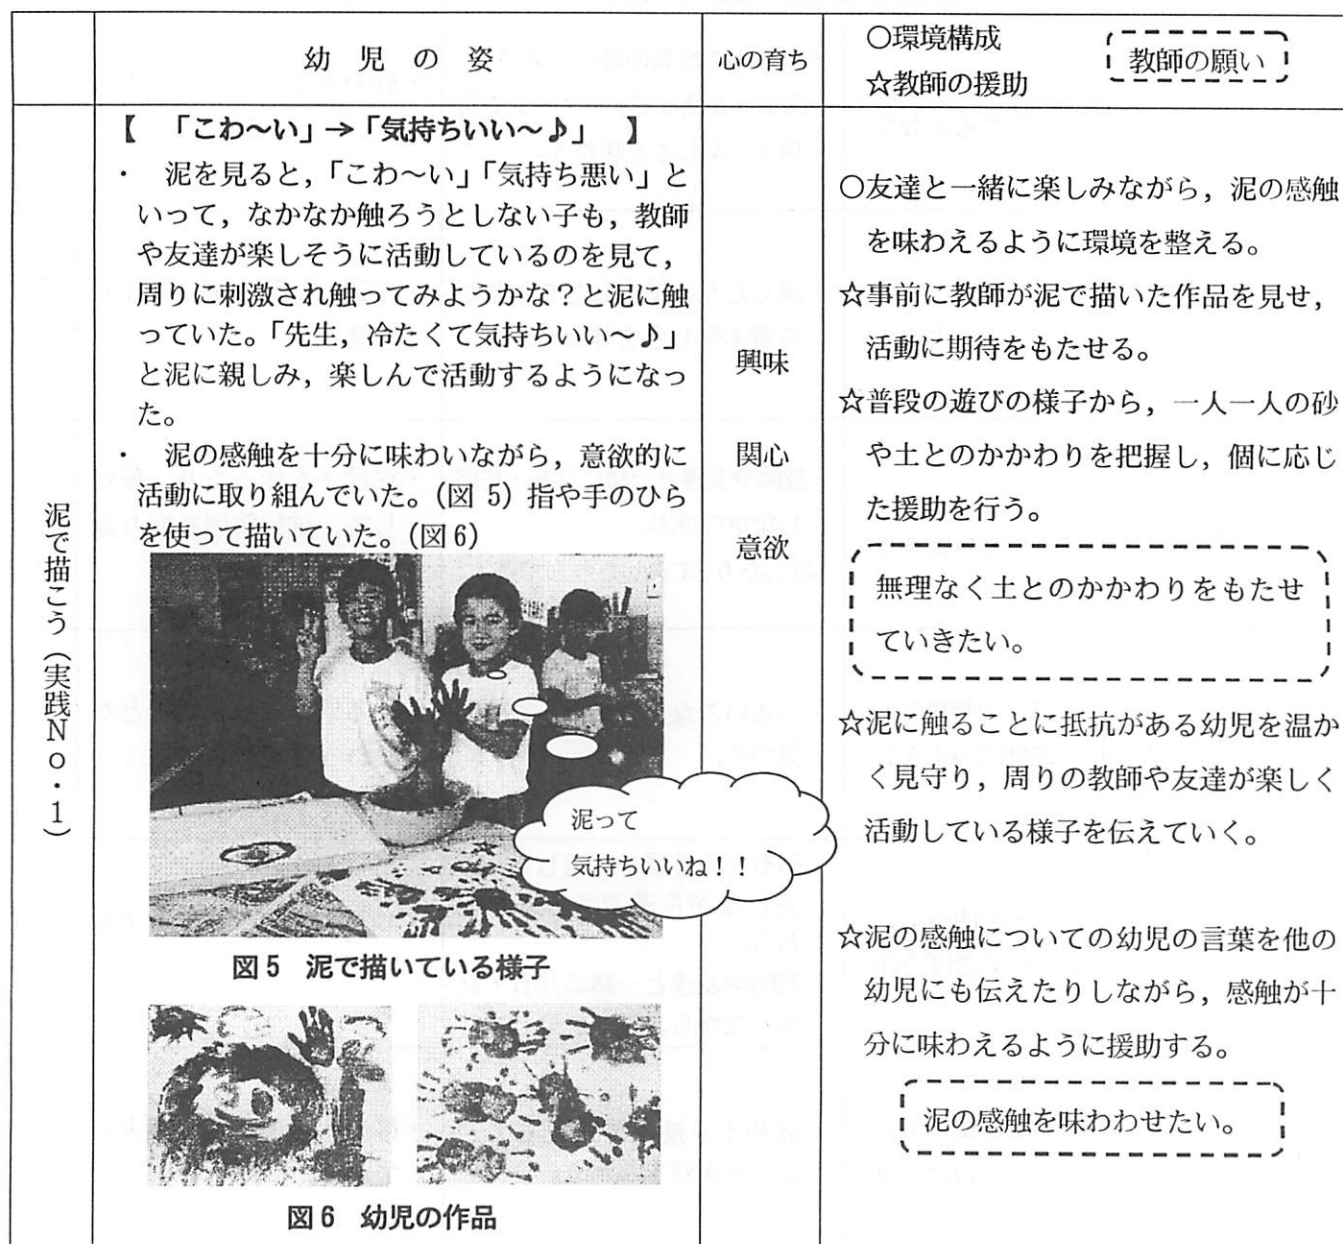 幼児の姿
心の育ち
○環境構成
☆教師の援助
教師の願い
泥で描こう（実践No・1）
【 「こわ～い」→「気持ちいい～♪」 】
・ 泥を見ると，「こわ～い」「気持ち悪い」と
いって，なかなか触ろうとしない子も，教師
や友達が楽しそうに活動しているのを見て，
周りに刺激され触ってみようかな？と泥に触
っていた。「先生，冷たくて気持ちいい～♪」
と泥に親しみ，楽しんで活動するようになっ
た。
・ 泥の感触を十分に味わいながら，意欲的に
活動に取り組んでいた。(図 5) 指や手のひら
を使って描いていた。(図6)
泥って
気持ちいいね！！
図5 泥で描いている様子
図6 幼児の作品
興味
関心
意欲
○友達と一緒に楽しみながら，泥の感触
を味わえるように環境を整える。
☆事前に教師が泥で描いた作品を見せ，
活動に期待をもたせる。
☆普段の遊びの様子から，一人一人の砂
や土とのかかわりを把握し，個に応じ
た援助を行う。
無理なく土とのかかわりをもたせ
ていきたい。
☆泥に触ることに抵抗がある幼児を温か
く見守り，周りの教師や友達が楽しく
活動している様子を伝えていく。
☆泥の感触についての幼児の言葉を他の
幼児にも伝えたりしながら，感触が十
分に味わえるように援助する。
泥の感触を味わわせたい。